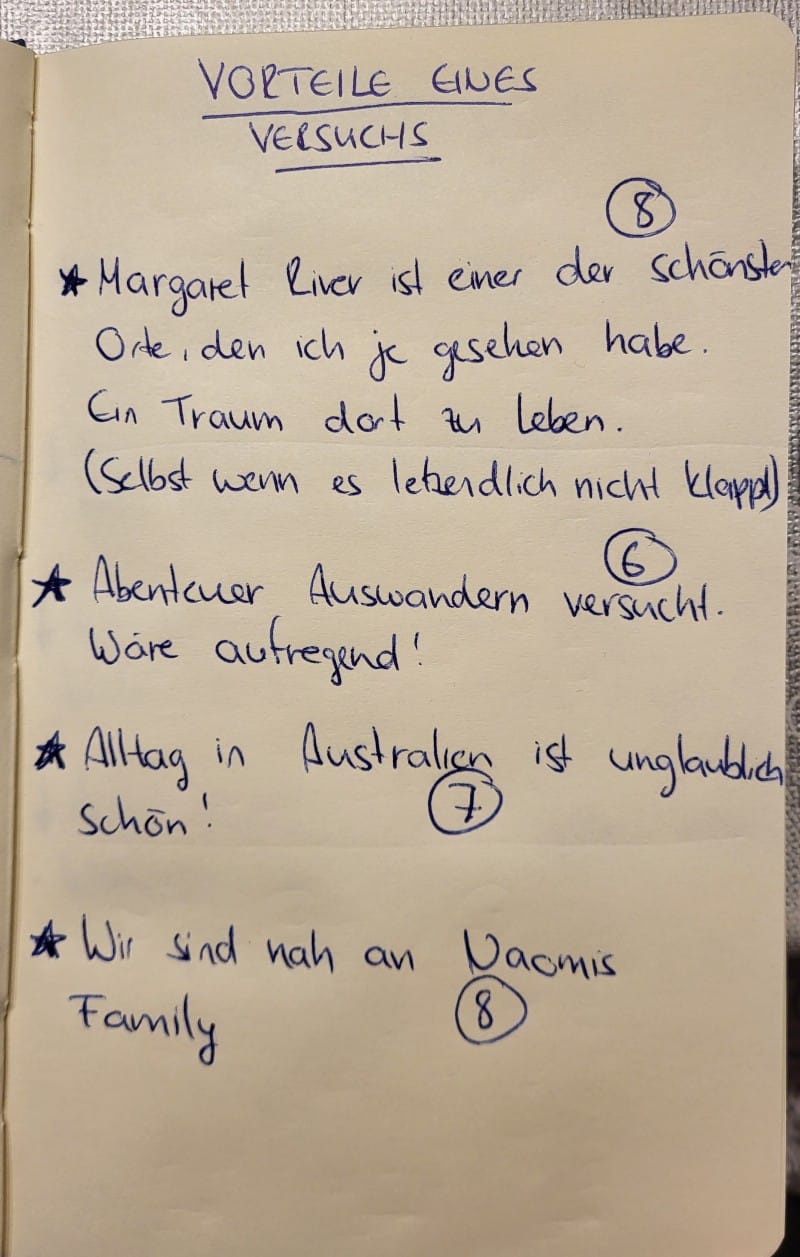 VORTEILE EINES
VERSUCHS
8
★ Margaret River ist einer der schönsten
Orte, den ich je gesehen habe.
Ein Traum dort zu leben.
(Selbst wenn es letzendlich nicht klappt)
6
★ Abenteuer Auswandern versucht.
Wäre aufregend!
★ Alltag in Australien ist unglaublich
schön! 7
★ Wir sind nah an Naomis
Family 8